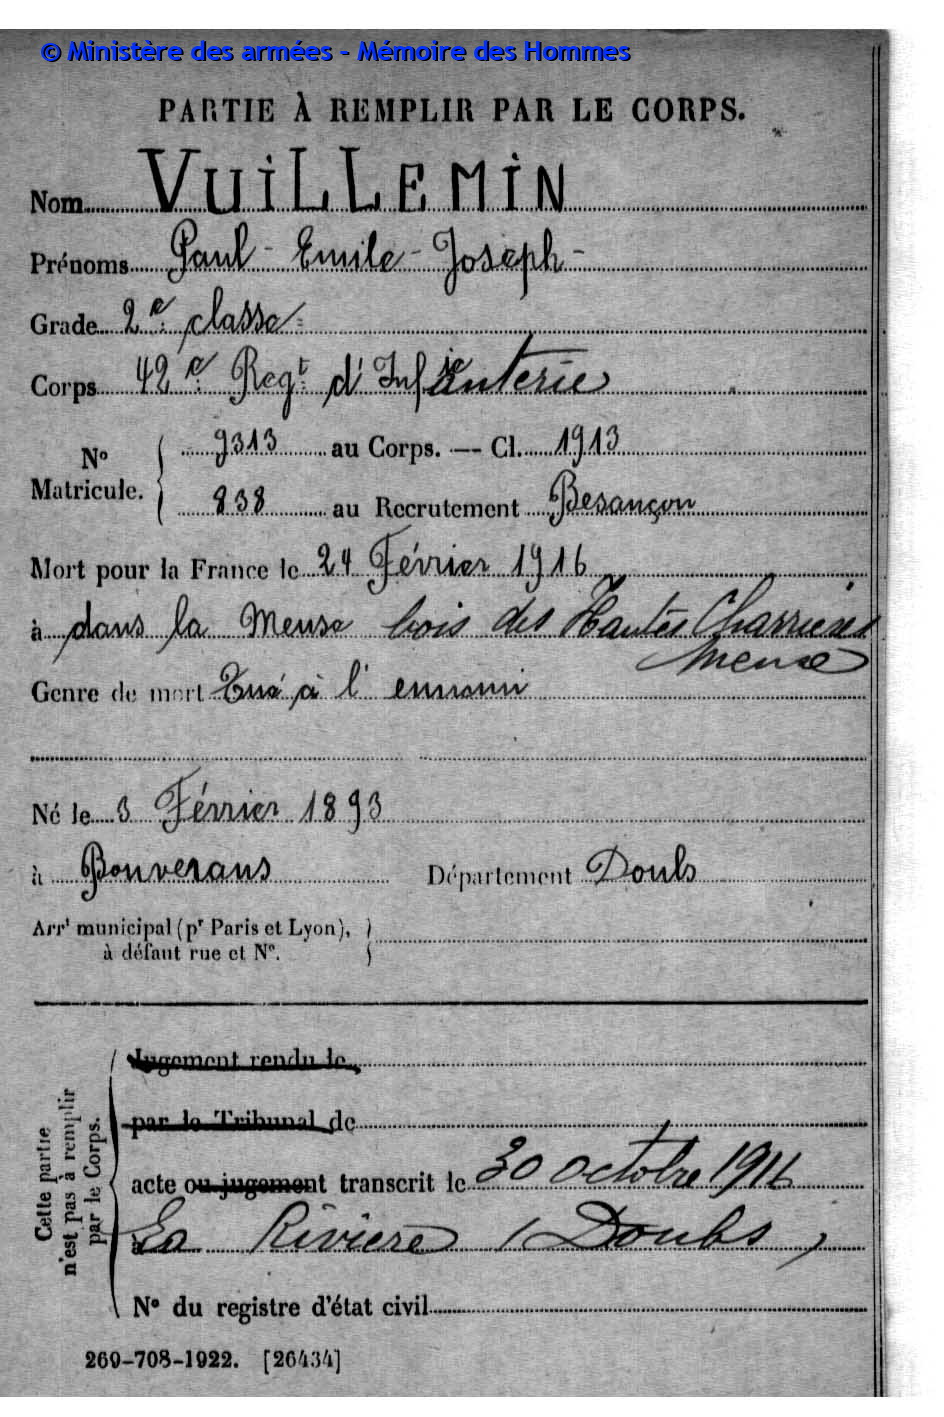 © Ministère des armées - Mémoire des Hommes
PARTIE À REMPLIR PAR LE CORPS.
Nom VUiLLEMiN
Prénoms Paul - Emile - Joseph -
Grade 2e classe
Corps 42e Regt d'Infanterie
No Matricule. 9313 au Corps. — Cl. 1913
838 au Recrutement Besançon
Mort pour la France le 24 Février 1916
à dans la Meuse bois des Hautes Charrières
Meuse
Genre de mort Tué à l'ennemi
Né le 3 Février 1893
à Bouverans Département Doubs
Arrt municipal (pr Paris et Lyon),
à défaut rue et No.
Cette partie
n'est pas à remplir
par le Corps.
Jugement rendu le
par le Tribunal de
acte ou jugement transcrit le 30 octobre 1916
à La Rivière (Doubs)
No du registre d'état civil
269-708-1922. [26434]